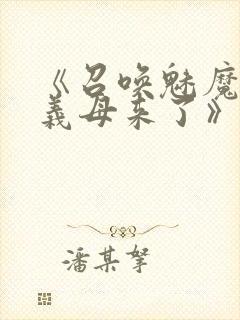 《召唤魅魔
義母来了》
潘某拏